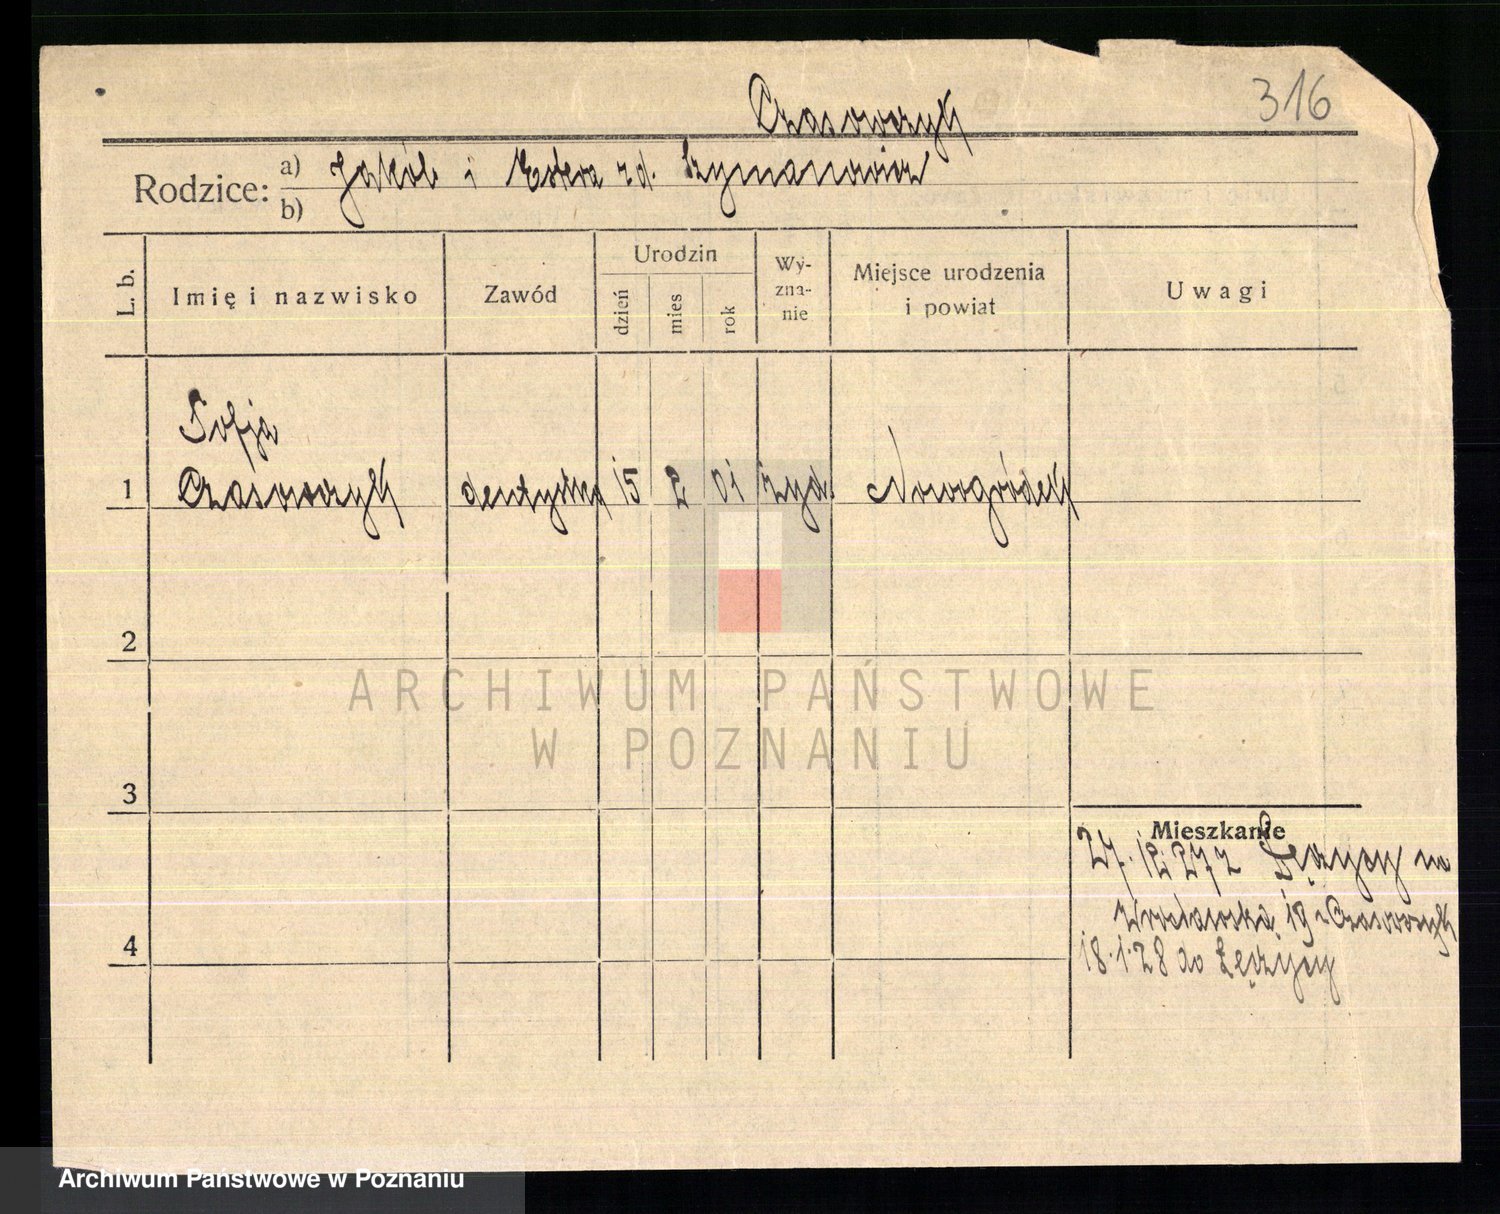 Czasowszyk
316
Rodzice: a) Jakób i Estera zd. Szymanowicz
b)
L. b.
Imię i nazwisko
Zawód
Urodzin
dzień
mies
rok
Wy-
zna-
nie
Miejsce urodzenia
i powiat
Uwagi
Sofja
1 Czasowszyk dentystka 15 2 01 żyd. Nowogródek
2
ARCHIWUM PAŃSTWOWE
W POZNANIU
3
Mieszkanie
27.12.27 z Łęczycy na
Wrocławska 19
4
18.1.28 do Łęczycy
Archiwum Państwowe w Poznaniu